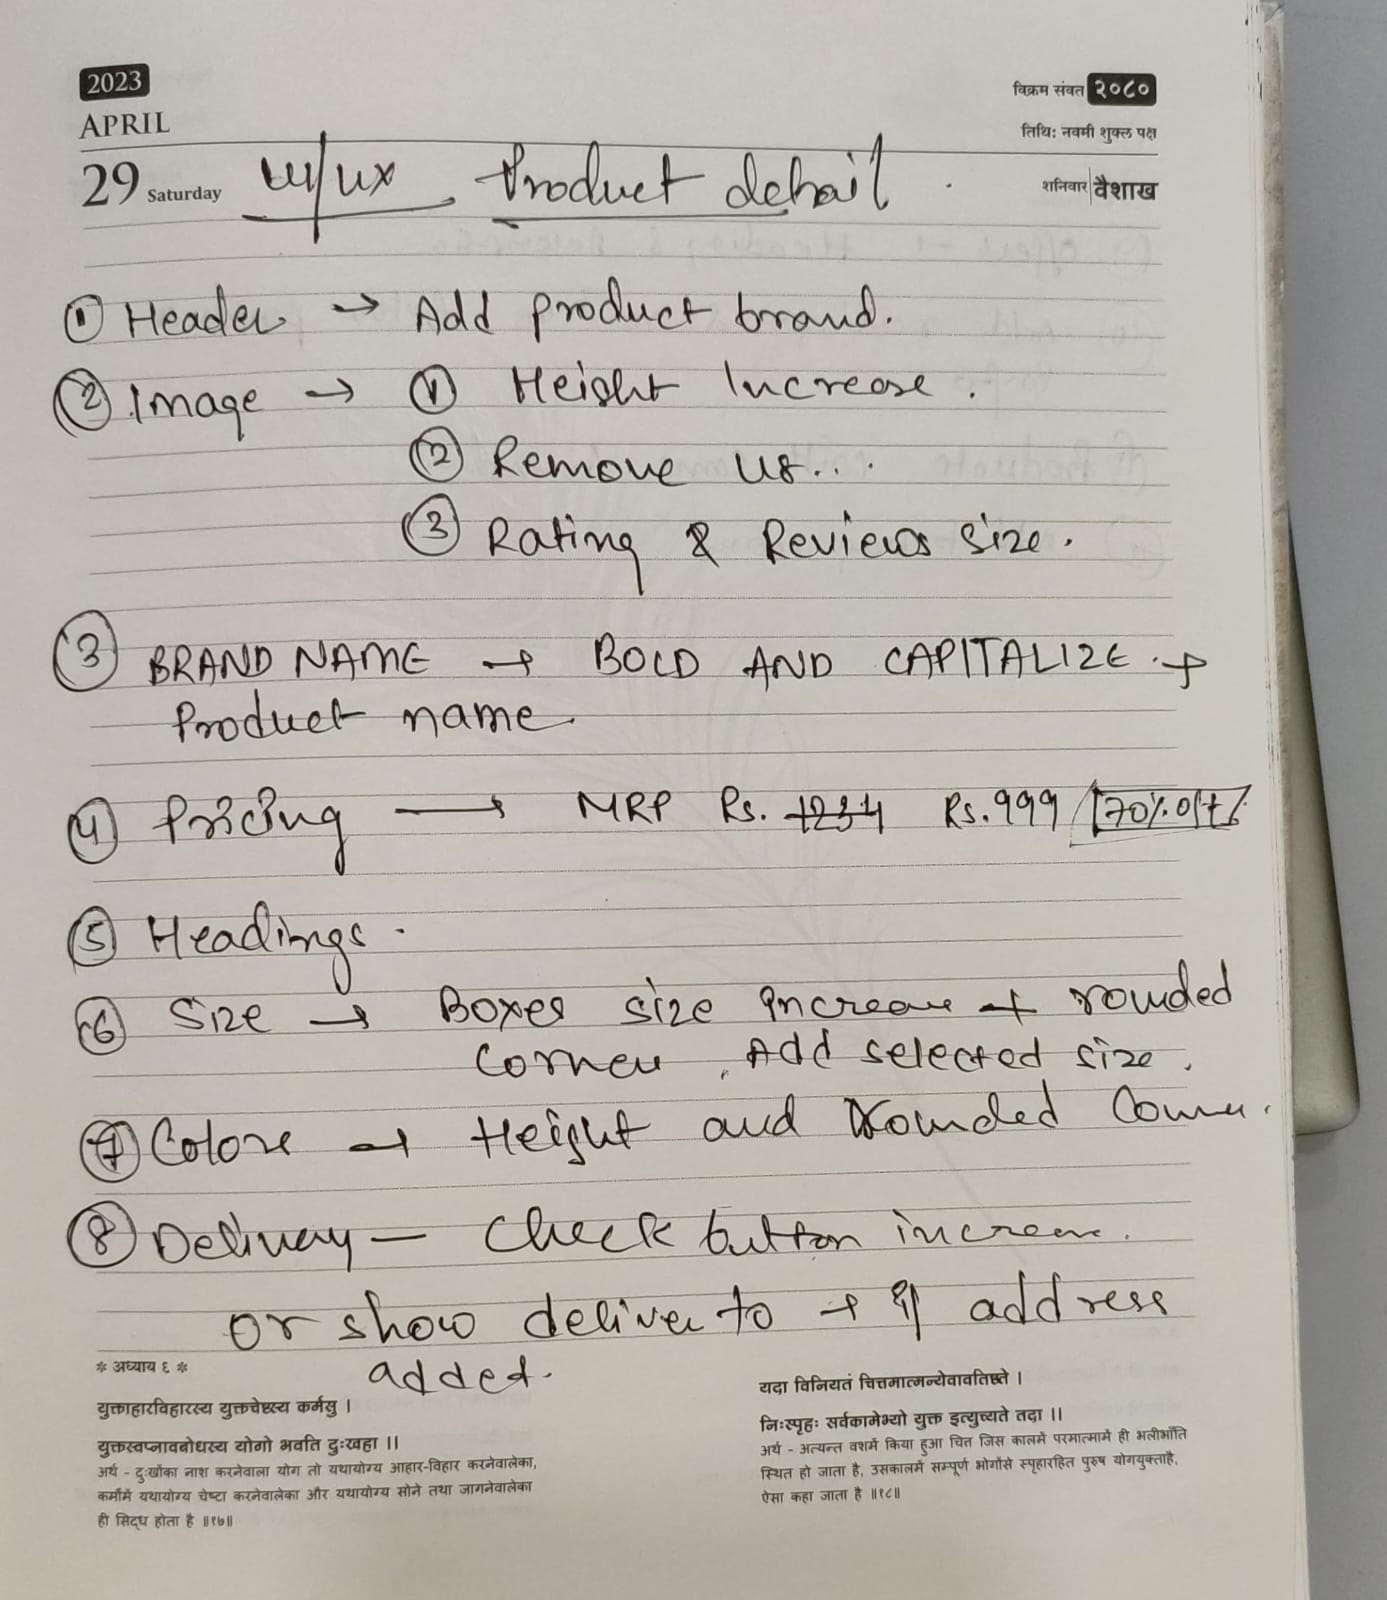 2023
विक्रम संवत २०८०
APRIL
तिथि: नवमी शुक्ल पक्ष
29 Saturday UI/UX Product detail.
शनिवार वैशाख
① Header → Add product brand.
② Image → ① Height Increase.
② Remove us...
③ Rating & Reviews size.
③ BRAND NAME → BOLD AND CAPITALIZE. +
Product name.
④ Pricing → MRP Rs. 1234 Rs.999 70% off
⑤ Headings.
⑥ Size → Boxes size increase + rounded
corner, Add selected size.
⑦ Colors → Height and Rounded Corner.
⑧ Delivery — Check button increase.
or show deliver to → if address
added.
* अध्याय ६ *
युक्ताहारविहारस्य युक्तचेष्टस्य कर्मसु ।
युक्तस्वप्नावबोधस्य योगो भवति दुःखहा ।।
अर्थ - दुःखोंका नाश करनेवाला योग तो यथायोग्य आहार-विहार करनेवालेका,
कर्मोंमें यथायोग्य चेष्टा करनेवालेका और यथायोग्य सोने तथा जागनेवालेका
ही सिद्ध होता है ॥१७॥
यदा विनियतं चित्तमात्मन्येवावतिष्ठते ।
निःस्पृहः सर्वकामेभ्यो युक्त इत्युच्यते तदा ।।
अर्थ - अत्यन्त वशमें किया हुआ चित्त जिस कालमें परमात्मामें ही भलीभाँति
स्थित हो जाता है, उसकालमें सम्पूर्ण भोगोंसे स्पृहारहित पुरुष योगयुक्ताहै,
ऐसा कहा जाता है ॥१८॥